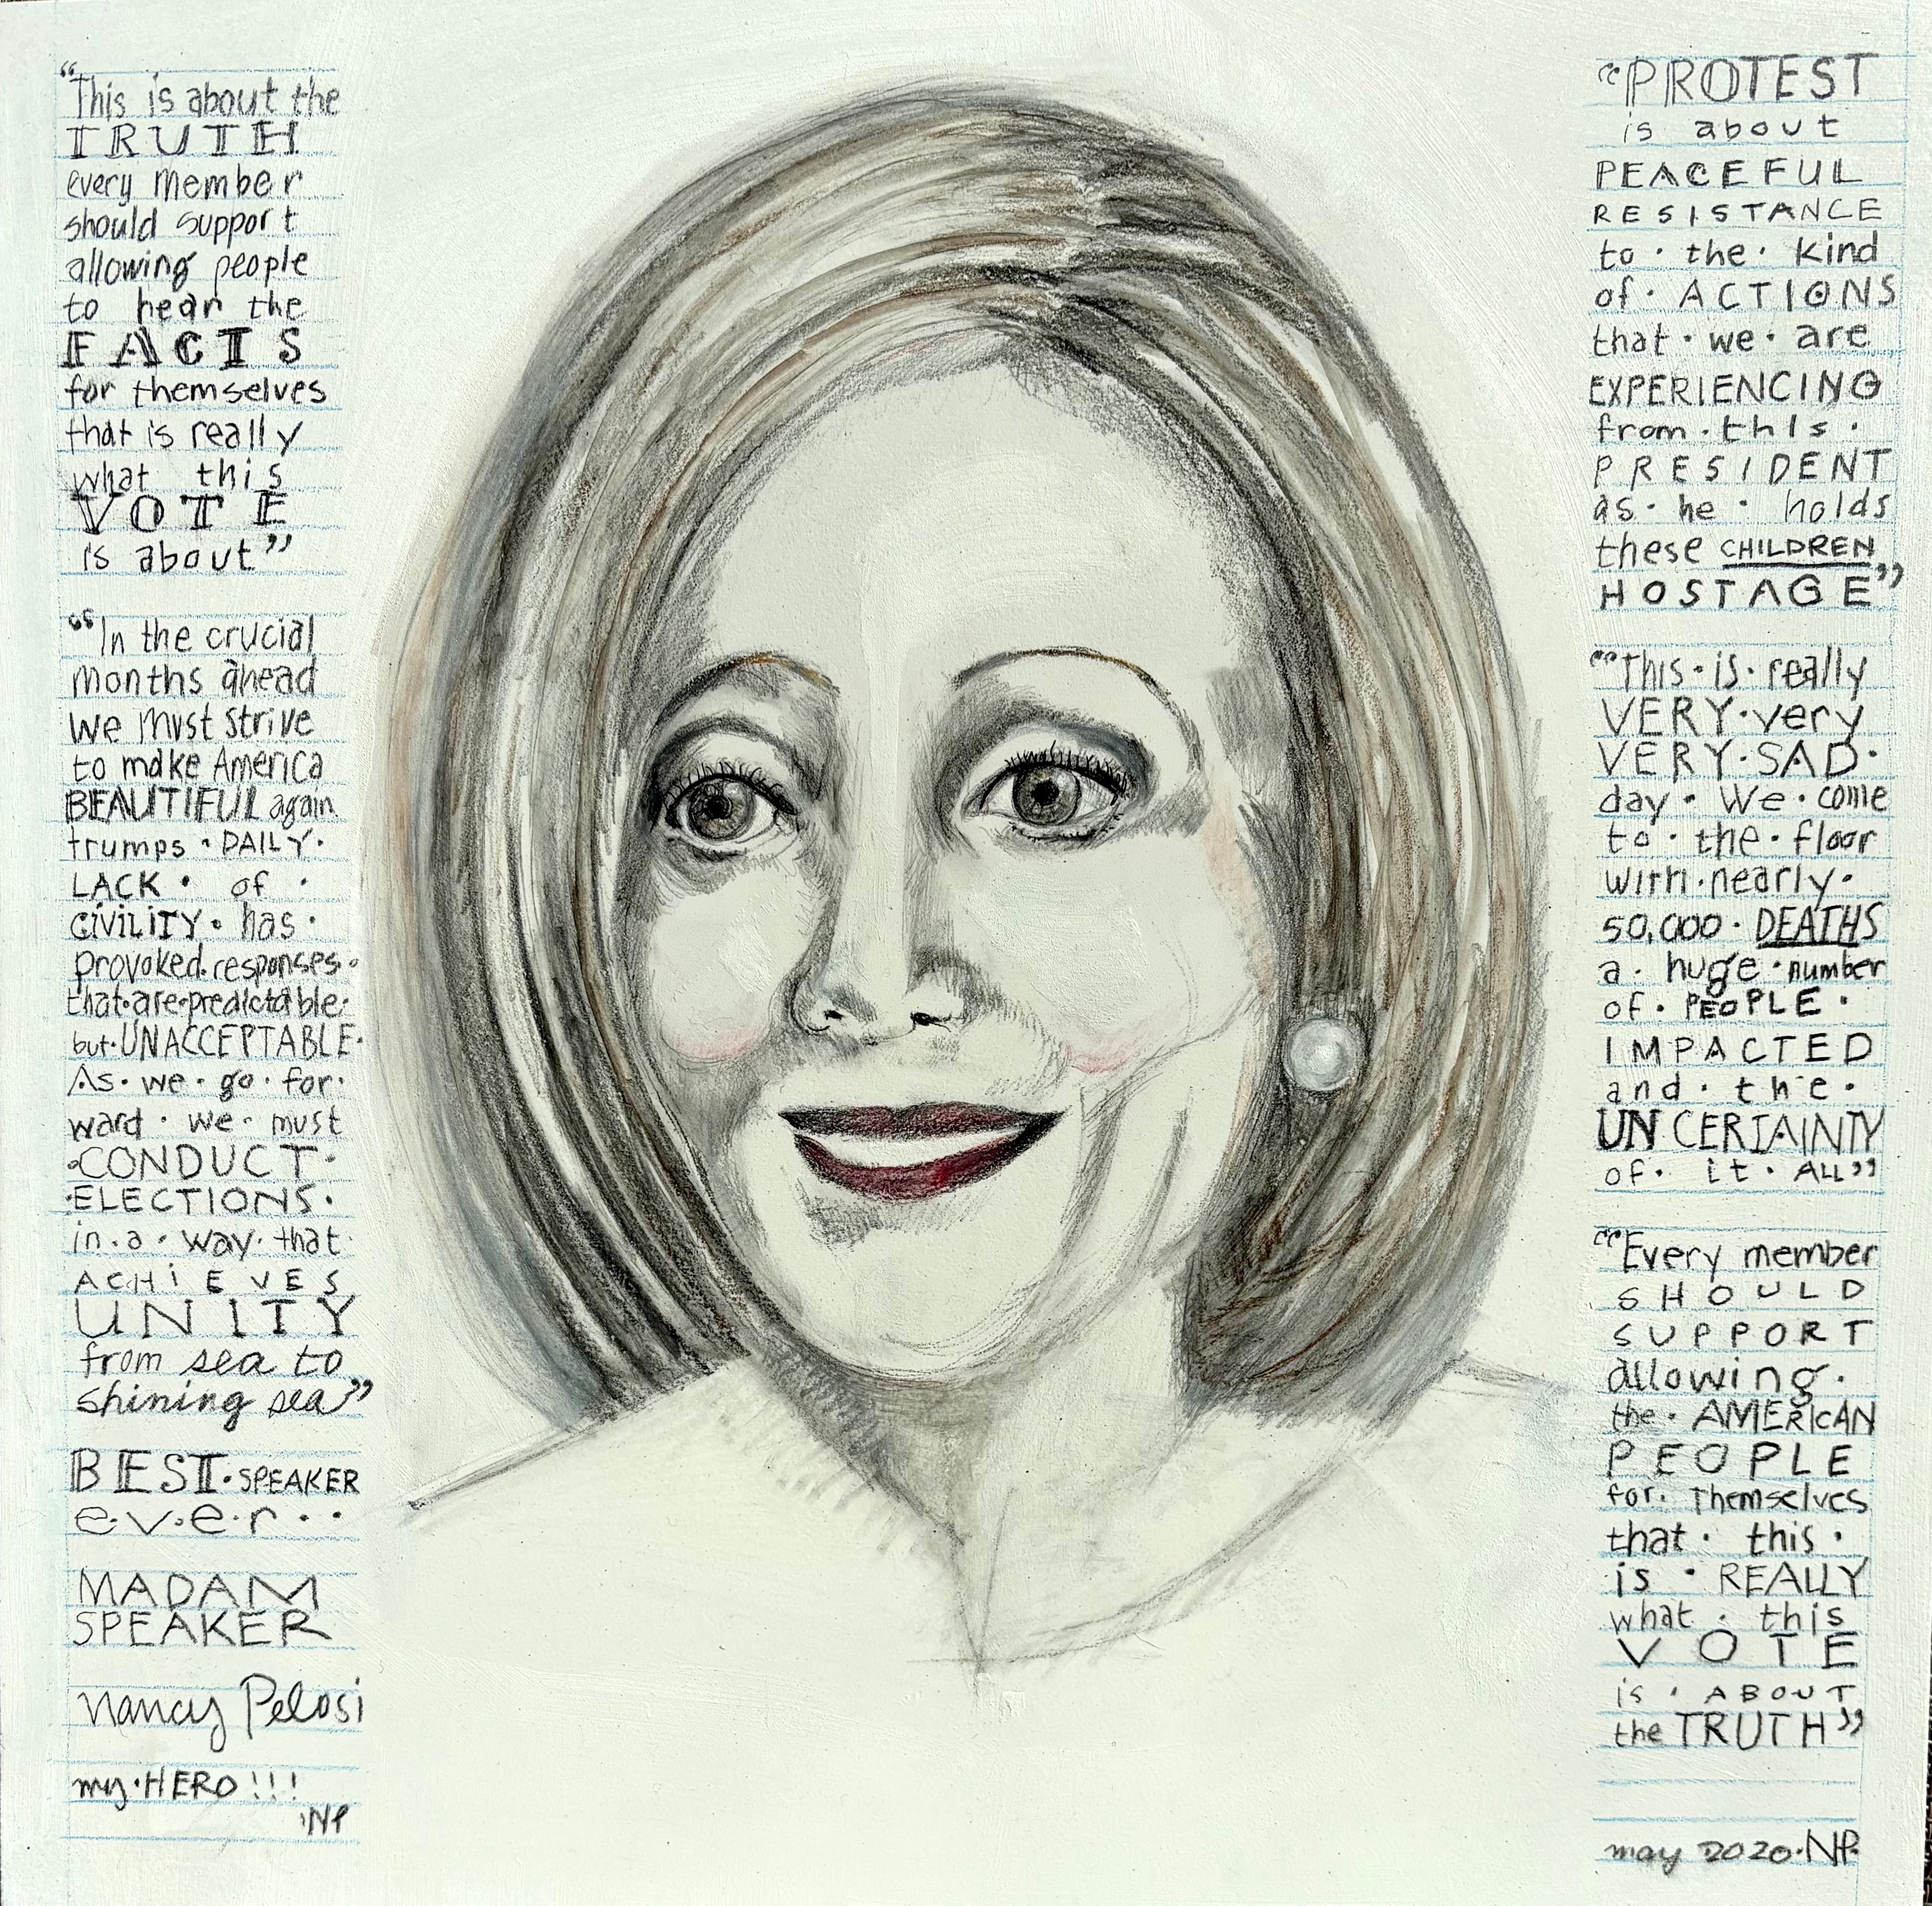 “This is about the
TRUTH
every member
should support
allowing people
to hear the
FACTS
for themselves
that is really
what this
VOTE
is about”
“In the crucial
months ahead
we must strive
to make America
BEAUTIFUL again
trumps · DAILY ·
LACK · of ·
CIVILITY · has ·
provoked · responses ·
that · are · predictable ·
but · UNACCEPTABLE ·
As · we · go · for ·
ward · we · must
· CONDUCT ·
· ELECTIONS ·
in · a · way · that ·
ACHIEVES
UNITY
from sea to
shining sea”
BEST · SPEAKER
e · v · e · r · ·
MADAM
SPEAKER
Nancy Pelosi
my · HERO!!!
· NP
“PROTEST
is about
PEACEFUL
RESISTANCE
to · the · kind
of · ACTIONS
that · we · are
EXPERIENCING
from · this ·
PRESIDENT
as · he · holds
these CHILDREN
HOSTAGE”
“This · is · really
VERY · very
VERY · SAD ·
day · We · come
to · the · floor
with · nearly ·
50,000 · DEATHS
a · huge · number
of · PEOPLE ·
IMPACTED
and · the ·
UNCERTAINTY
of · it · ALL”
“Every member
SHOULD
SUPPORT
allowing ·
the · AMERICAN
PEOPLE
for · Themselves
that · this ·
is · REALLY
what · this
VOTE
is · ABOUT
the TRUTH”
may 2020 · NP ·